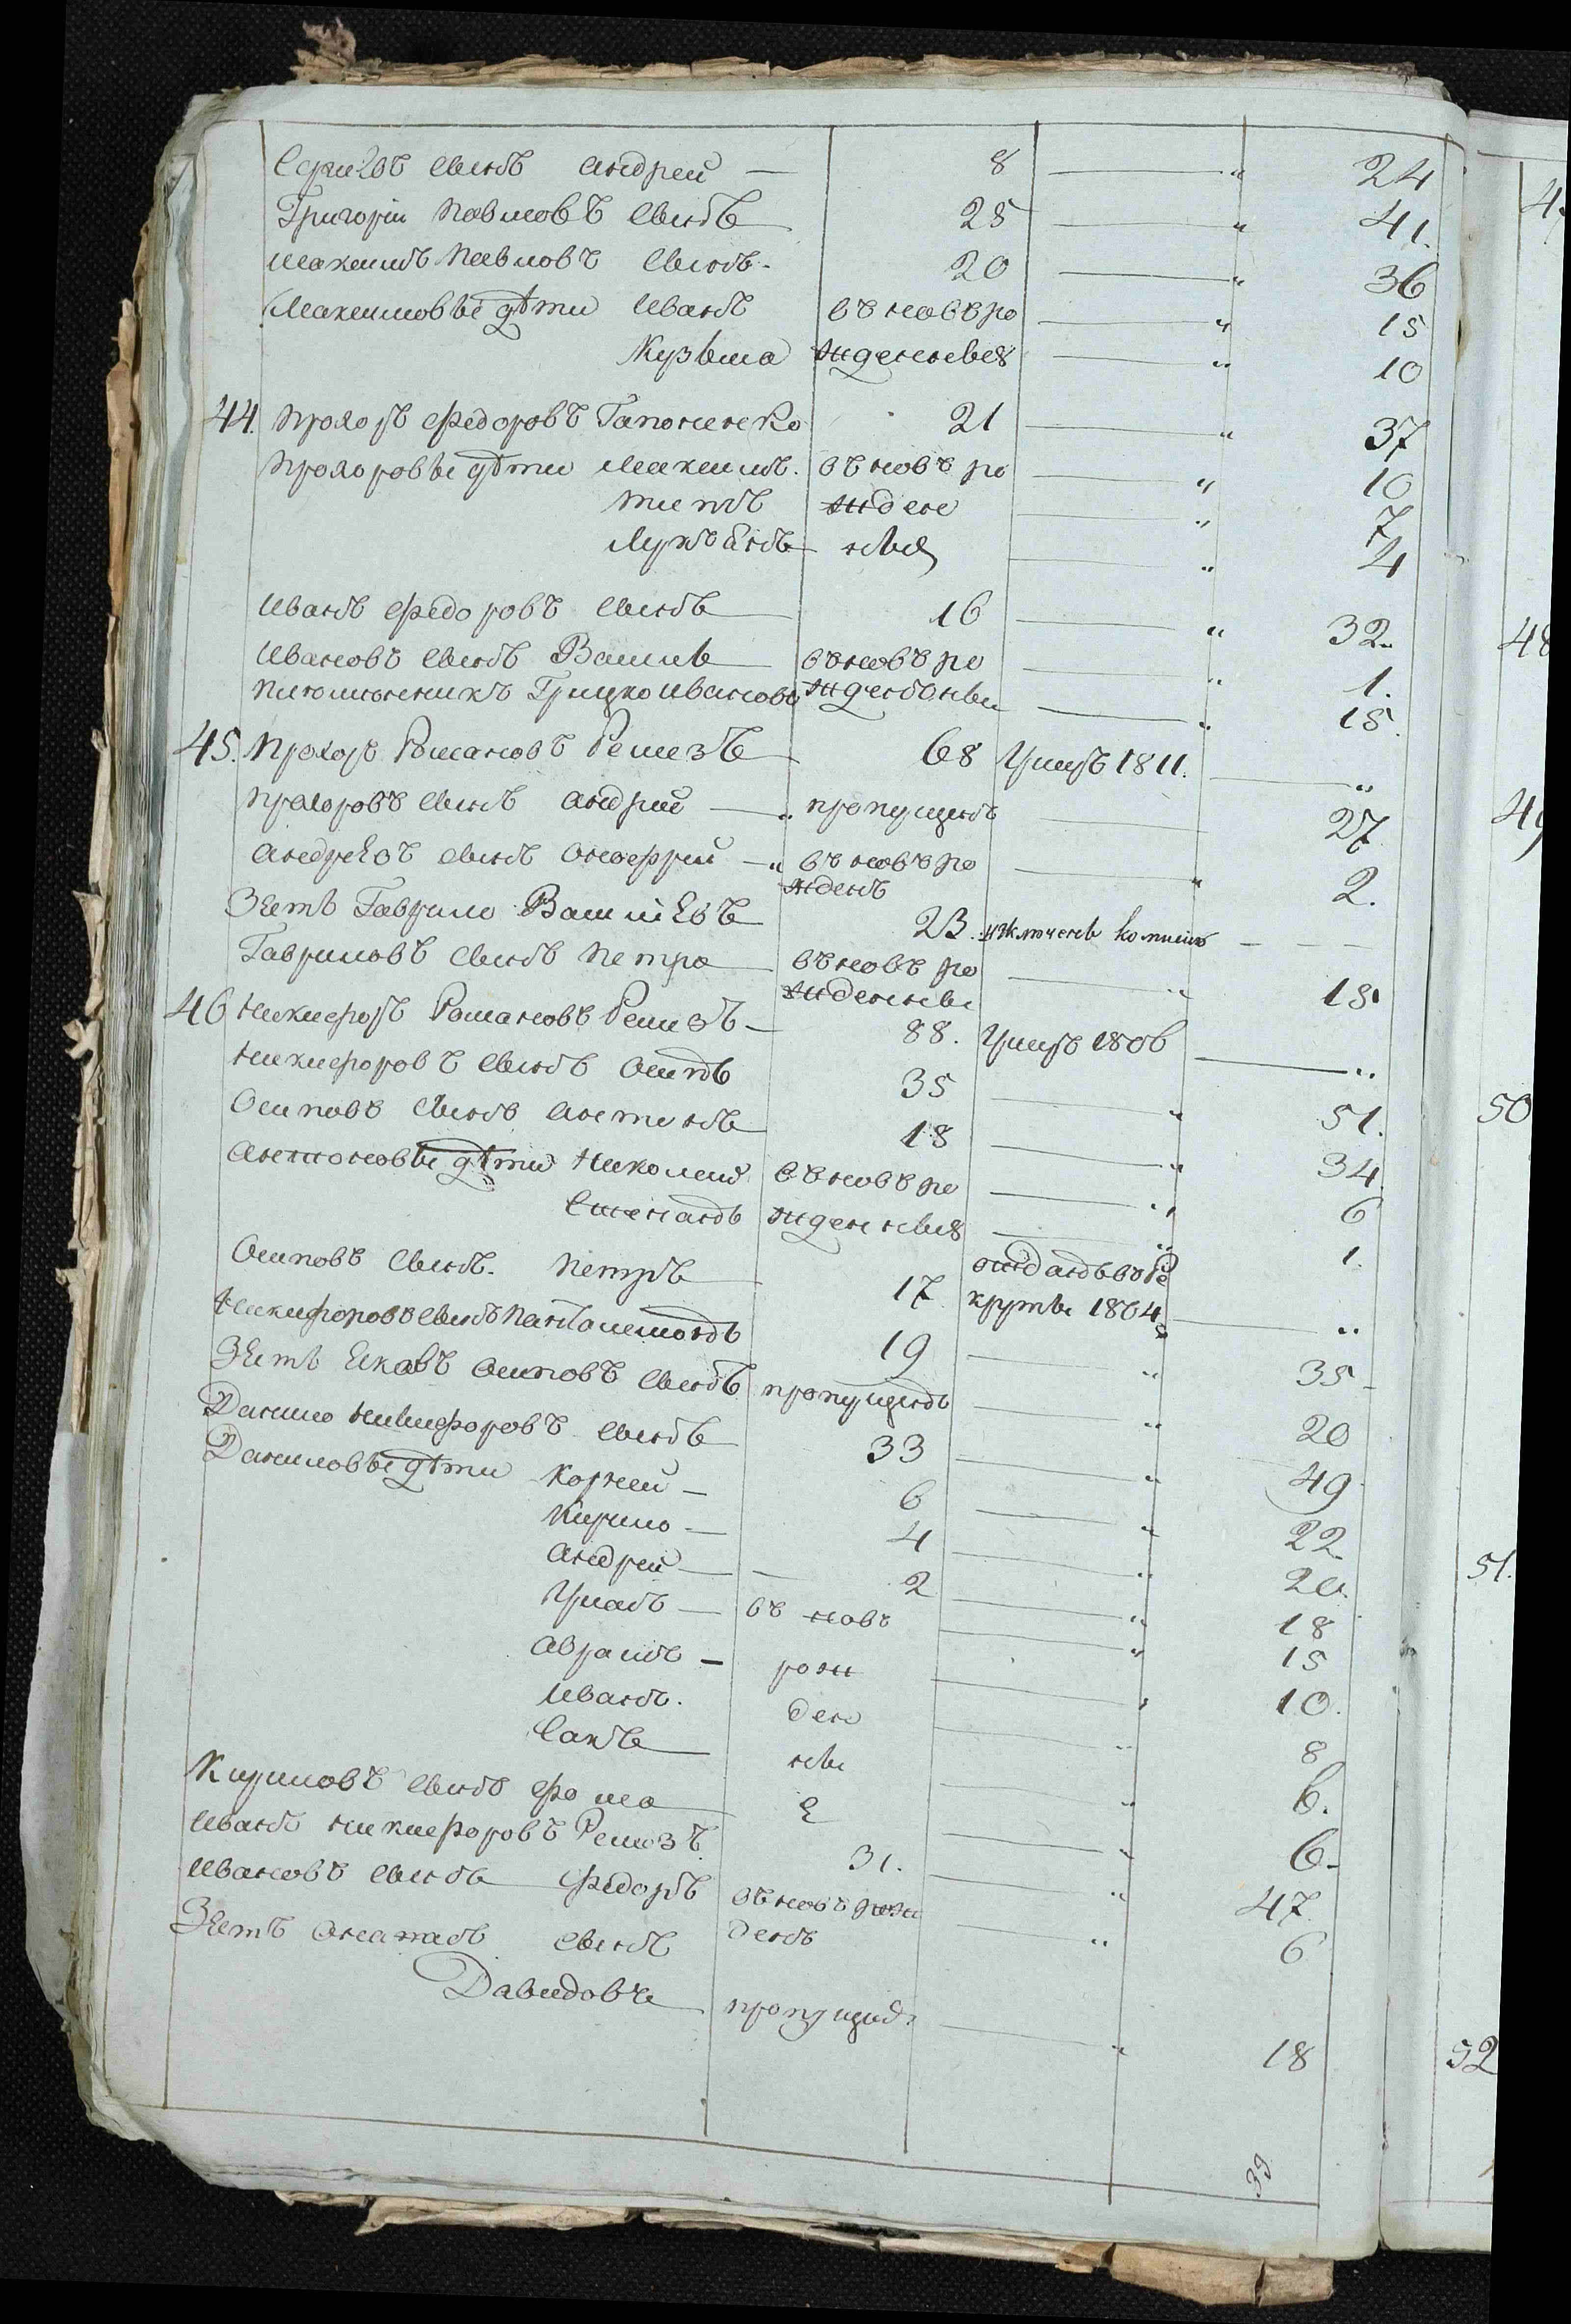 Сергіевъ сынъ Андрей — 8 — " 24
Григорій Павловъ сынъ 25 — " 41.
Максимъ Павловъ сынъ. 20 — " 36
Максимовы дѣти Иванъ въ новѣ ро — " 15
Кузьма жденныя — " 10
44. Прохоръ Федоровъ Гапоненко 21 — " 37
Прохоровы дѣти Максимъ. въ новѣ ро — " 10
жден — " 7
Лукьянъ ныя — " 4
Иванъ Федоровъ сынъ 16 — " 32.
Ивановъ сынъ Василь въ новѣ ро — " 1.
Грицко Ивановъ жденъ — " 15.
45. Прохоръ Романовъ Ремезъ 68 Умеръ 1811. — "
Прохоровъ сынъ Андрей — " пропущенъ — 27
Андреевъ сынъ Онофрей — " въ новѣ ро — " 2.
жденъ
Зять Гаврило Василіевъ 23. изключенъ — — —
Гавриловъ сынъ Петро въ новѣ ро — " 15.
жденны
46 Никифоръ Романовъ Ремезъ — 88. Умеръ 1806 — "
Никифоровъ сынъ Осипъ 35 — " 51.
Осиповъ сынъ Антонъ 18 — " 34
Антоновы дѣти Николай въ новѣ ро — " 6
жденныя — " 1.
Осиповъ сынъ. Петръ 17 отданъ въ ре
круты 1804 — "
Никифоровъ сынъ Пантелемонъ 19 — " 35 —
Зять Яковъ Осиповъ сынъ пропущенъ — " 20
Данило Никифоровъ сынъ 33 — " 49.
Даниловы дѣти Корней — 6 — " 22.
Кирило — 4 — " 20.
Андрей — — 2 — " 18
въ новѣ — " 15
Аврамъ — рож — ' 10.
Иванъ. ден — " 8
ны — " 6.
Кириловъ сынъ Фома е — " 6.
Иванъ Никифоровъ Ремезъ. 31. — " 47
Ивановъ сынъ Федоръ въ новѣ рож — " 6
денъ
Зять сынъ
Давидовъ пропущен. — " 18
39
48
49
50
51.
52